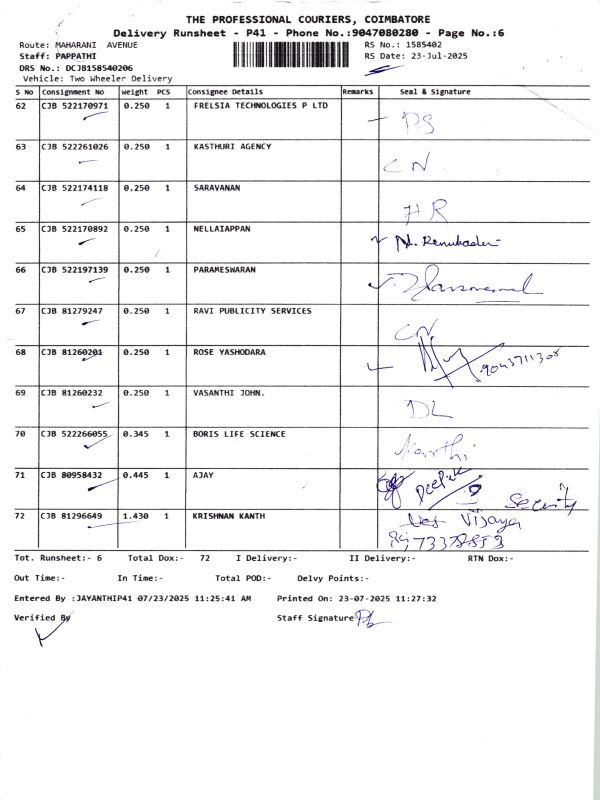 THE PROFESSIONAL COURIERS, COIMBATORE
Delivery Runsheet - P41 - Phone No.:9047080280 - Page No.:6
Route: MAHARANI AVENUE RS No.: 1585402
Staff: PAPPATHI RS Date: 23-Jul-2025
DRS No.: DCJB158540206
Vehicle: Two Wheeler Delivery
S No Consignment No Weight PCS Consignee Details Remarks Seal & Signature
62 CJB 522170971 0.250 1 FRELSIA TECHNOLOGIES P LTD DS
63 CJB 522261026 0.250 1 KASTHURI AGENCY CN
64 CJB 522174118 0.250 1 SARAVANAN HR
65 CJB 522170892 0.250 1 NELLAIAPPAN
66 CJB 522197139 0.250 1 PARAMESWARAN
67 CJB 81279247 0.250 1 RAVI PUBLICITY SERVICES CN
68 CJB 81260201 0.250 1 ROSE YASHODARA 9043711308
69 CJB 81260232 0.250 1 VASANTHI JOHN. DL
70 CJB 522266055 0.345 1 BORIS LIFE SCIENCE Karthi
71 CJB 80958432 0.445 1 AJAY Deepak Security
72 CJB 81296649 1.430 1 KRISHNAN KANTH Vijaya
Tot. Runsheet:- 6 Total Dox:- 72 I Delivery:- II Delivery:- RTN Dox:-
Out Time:- In Time:- Total POD:- Delvy Points:-
Entered By :JAYANTHIP41 07/23/2025 11:25:41 AM Printed On: 23-07-2025 11:27:32
Verified By Staff Signature